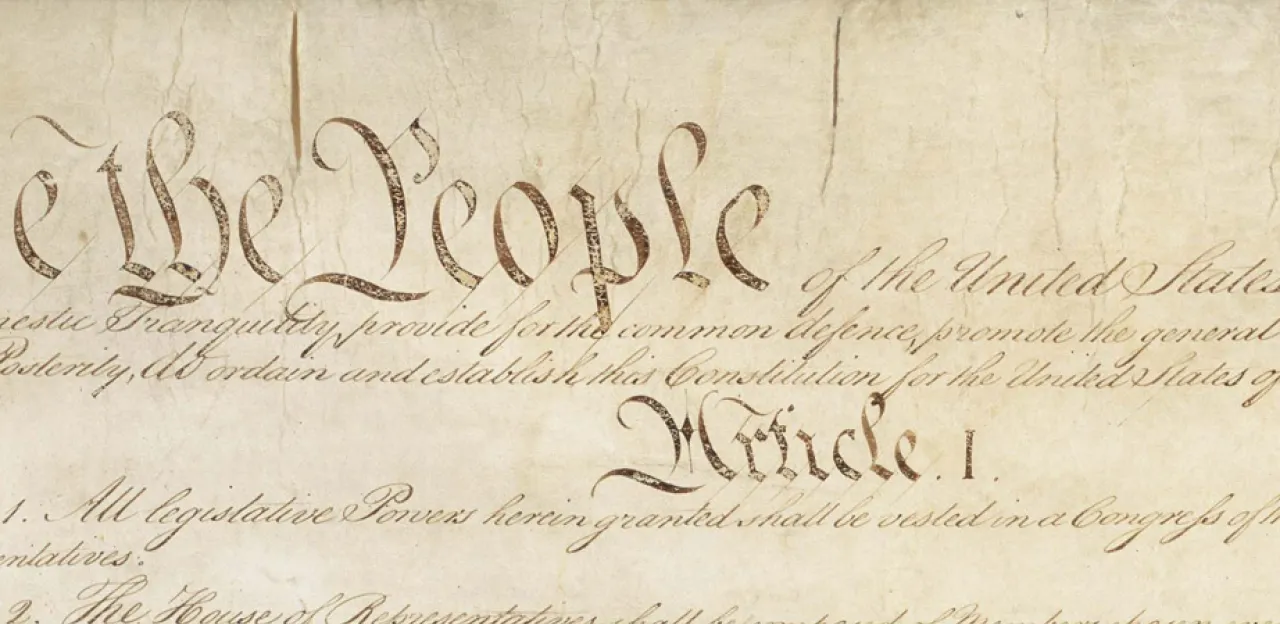 e the People of the United States
nestic Tranquility, provide for the common defence, promote the general
Posterity, do ordain and establish this Constitution for the United States of
Article. I.
1. All legislative Powers herein granted shall be vested in a Congress of th
entatives.
2. The House of Representatives shall be composed of Members chosen eve